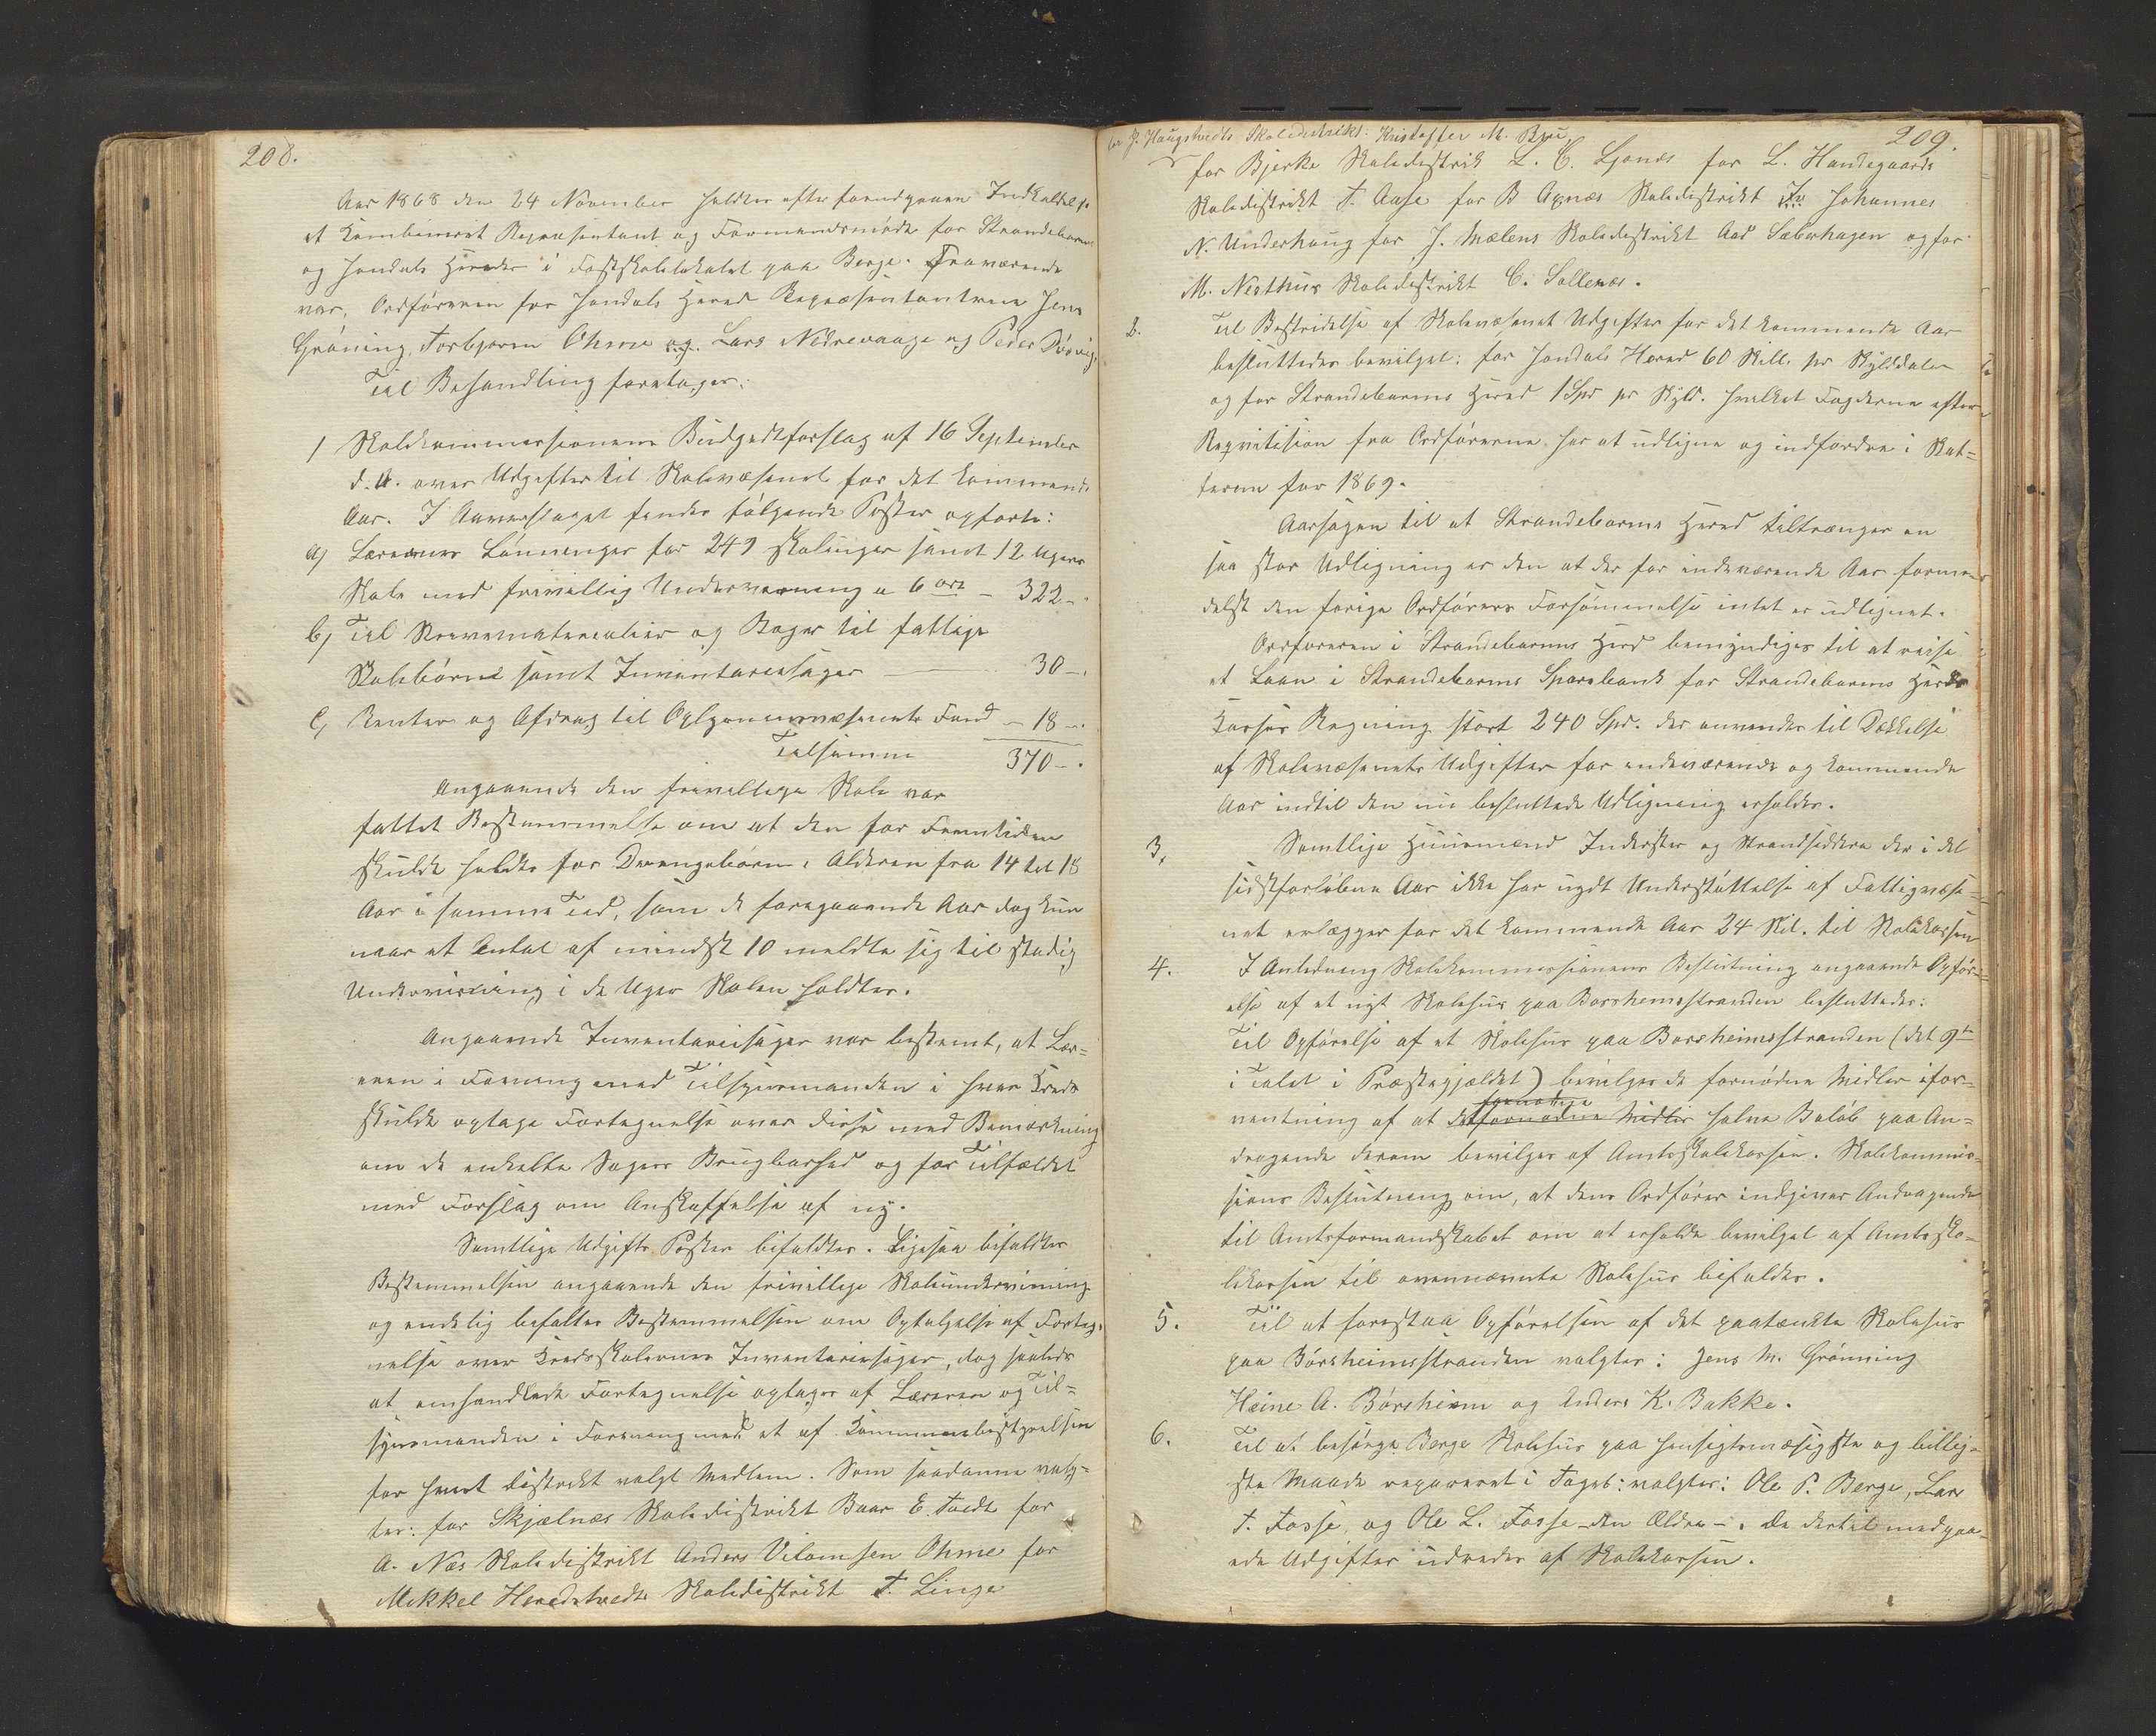 208.
Aar 1868 den 24 November holdtes efter foreudgaaen Indkaldelse
et Kombineret Repræsentant og Formandsmøde for Strandebarms
og Jondals Herreder i Fastskolelokalet paa Berge. Fraværende
var, Ordføreren for Jondals Hered Repræsentanterne Jens
Grøning, Torbjørn Ohme og Lars Nedrevaage og Peder
Til Behandling foretoges:
1 Skolekommissionens Budgedtforslag af 16 September
d. A. over Udgifter til Skolevæsenet for det kommende
Aar. I Overslaget fandes følgende Poster opførte:
a) Lærernes Lønninger for 249 Skoleuger samt 12 Ugers
Skole med frivillig Undervisning a 6 ort – 322 –
b) Til Skrivematerialier og Bøger til fattige
Skolebørn samt Inventariesager – 30 –
c) Renter og Afdrag til Oplysningsvæsenets Fond – 18 –
Tilsamm 370 – .
Angaaende den frivillige Skole var
fattet Bestemmelse om at den for Fremtiden
skulde holdes for Drengebørn i Alderen fra 14 til 18
Aar i samme Tid, som de foregaaende Aar dog kun
naar et Antal af mindst 10 meldte sig til stadig
Undervisning i de Uger Skolen holdtes.
Angaaende Inventariesager var bestemt, at Lær=
eren i Forening med Tilsynsmanden i hver Kreds
skulde optage Fortegnelse over disse med Bemærkning
om de enkelte Sagers Brugbarhed og for Tilfældet
med Forslag om Anskaffelse af ny.
Samtlige Udgifts Poster bifaldtes. Ligesaa bifaldtes
Bestemmelsen angaaende den frivillige Skoleundervisning
og endelig bifaltes Bestemmelsen om Optagelse af Forteg=
nelse over Kredsskolernes Inventariesager, dog saaledes
at omhandlede Fortegnelse optages af Læreren og Til=
synsmanden i Forening med et af Kommunebestyrelsen
for hvert Distrikt valgt Medlem. Som saadanne valg=
tes: for Skjælnæs Skoledistrikt Baar E. Tvedt for
A. Næs Skoledistrikt Anders Vilomsen Ohme for
Mikkel Heredstvedts Skoledistrikt T. Linge
209.
for J. Haugstvedts Skoledistrikt: Kristoffer M. Bru
for Bjerke Skoledistrik L. C. Ljonæs for L. Handegaards
Skoledistrikt T. Aase for B Axnæs Skoledistrikt Johannes
N. Underhaug for J. Mælens Skoledistrikt Aad Sæberhagen og for
M. Nerthus Skoledistrikt C. Sollenæs.
2. Til Bestridelse af Skolevæsenet Udgifter for det kommende Aar
besluttedes bevilget: for Jondals Hered 60 Skill. pr Skylddaler
og for Strandebarms Hered 1 Spd pr Skyld. hvilket Fogderne efter
Reqvisition fra Ordførerne har at udligne og indfordre i Skat=
terne for 1869.
Aarsagen til at Strandebarms Hered tiltrænger en
saa stor Udligning er den at der for indeværende Aar forme=
delst den forige Ordførers Forsømmelse intet er udlignet.
Ordføreren i Strandebarms Herd bemyndiges til at reise
et Laan i Strandebarms Sparebank for Strandebarms Hereds
Kasses Regning stort 240 Spd. der anvendes til Dækkelse
af Skolevæsenets Udgifter for indeværende og kommende
Aar indtil den nu besluttede Udligning erholdes.
3. Samtlige Huusmænd Inderster og Strandsiddere der i det
sidstforløbne Aar ikke har nydt Understøttelse af Fattigvæse=
net erlægger for det kommende Aar 24 Skil. til Skolekassen
4. I Anledning Skolekommissionens Beslutning angaaende Opfør=
else af et nyt Skolehus paa Borsheimsstranden besluttedes:
Til Opførelse af et Skolehus paa Borsheimsstranden (det 9de
i Talet i Præstegjældet) bevilges de fornødne Midler i for=
ventning af at det fornødne Midler halve Beløb paa An=
dragende derom bevilges af Amtsskolekassen. Skolekommis=
sions Beslutning om, at dens Ordfører indgiver Andragende
til Amtsformandskabet om at erholde bevilget af Amtssko=
lekassen til ovennævnte Skolehus bifaldes.
5. Til at forestaa Opførelsen af det paatænkte Skolehus
paa Børsheimsstranden valgtes: Jens M. Grønning
Heine A. Børsheim og Anders K. Bakke.
6. Til at besørge Berge Skolehus paa hensigtsmæsigste og billig=
ste Maade repareret i Taget: valgtes: Ole P. Berge, Lars
T. Fosse, og Ole L. Fosse – den Ældre – . De dertil medgaa=
ede Udgifter udredes af Skolekassen.